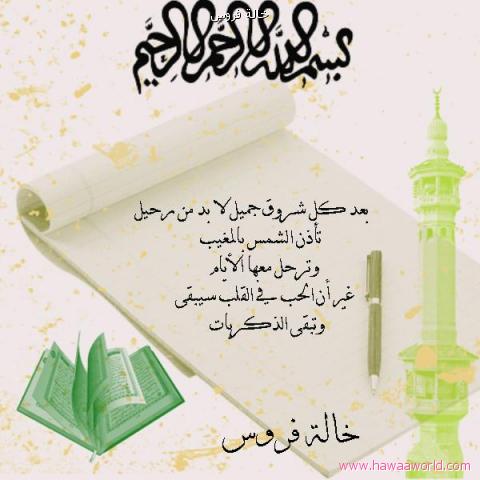 خالة فروس
بسم الله الرحمن الرحيم
بعد كل شروق جميل لا بد من رحيل
تأذن الشمس بالمغيب
وترحل معها الأيام
غير أن الحب في القلب سيبقى
وتبقى الذكريات
خالة فروس
www.hawaaworld.com